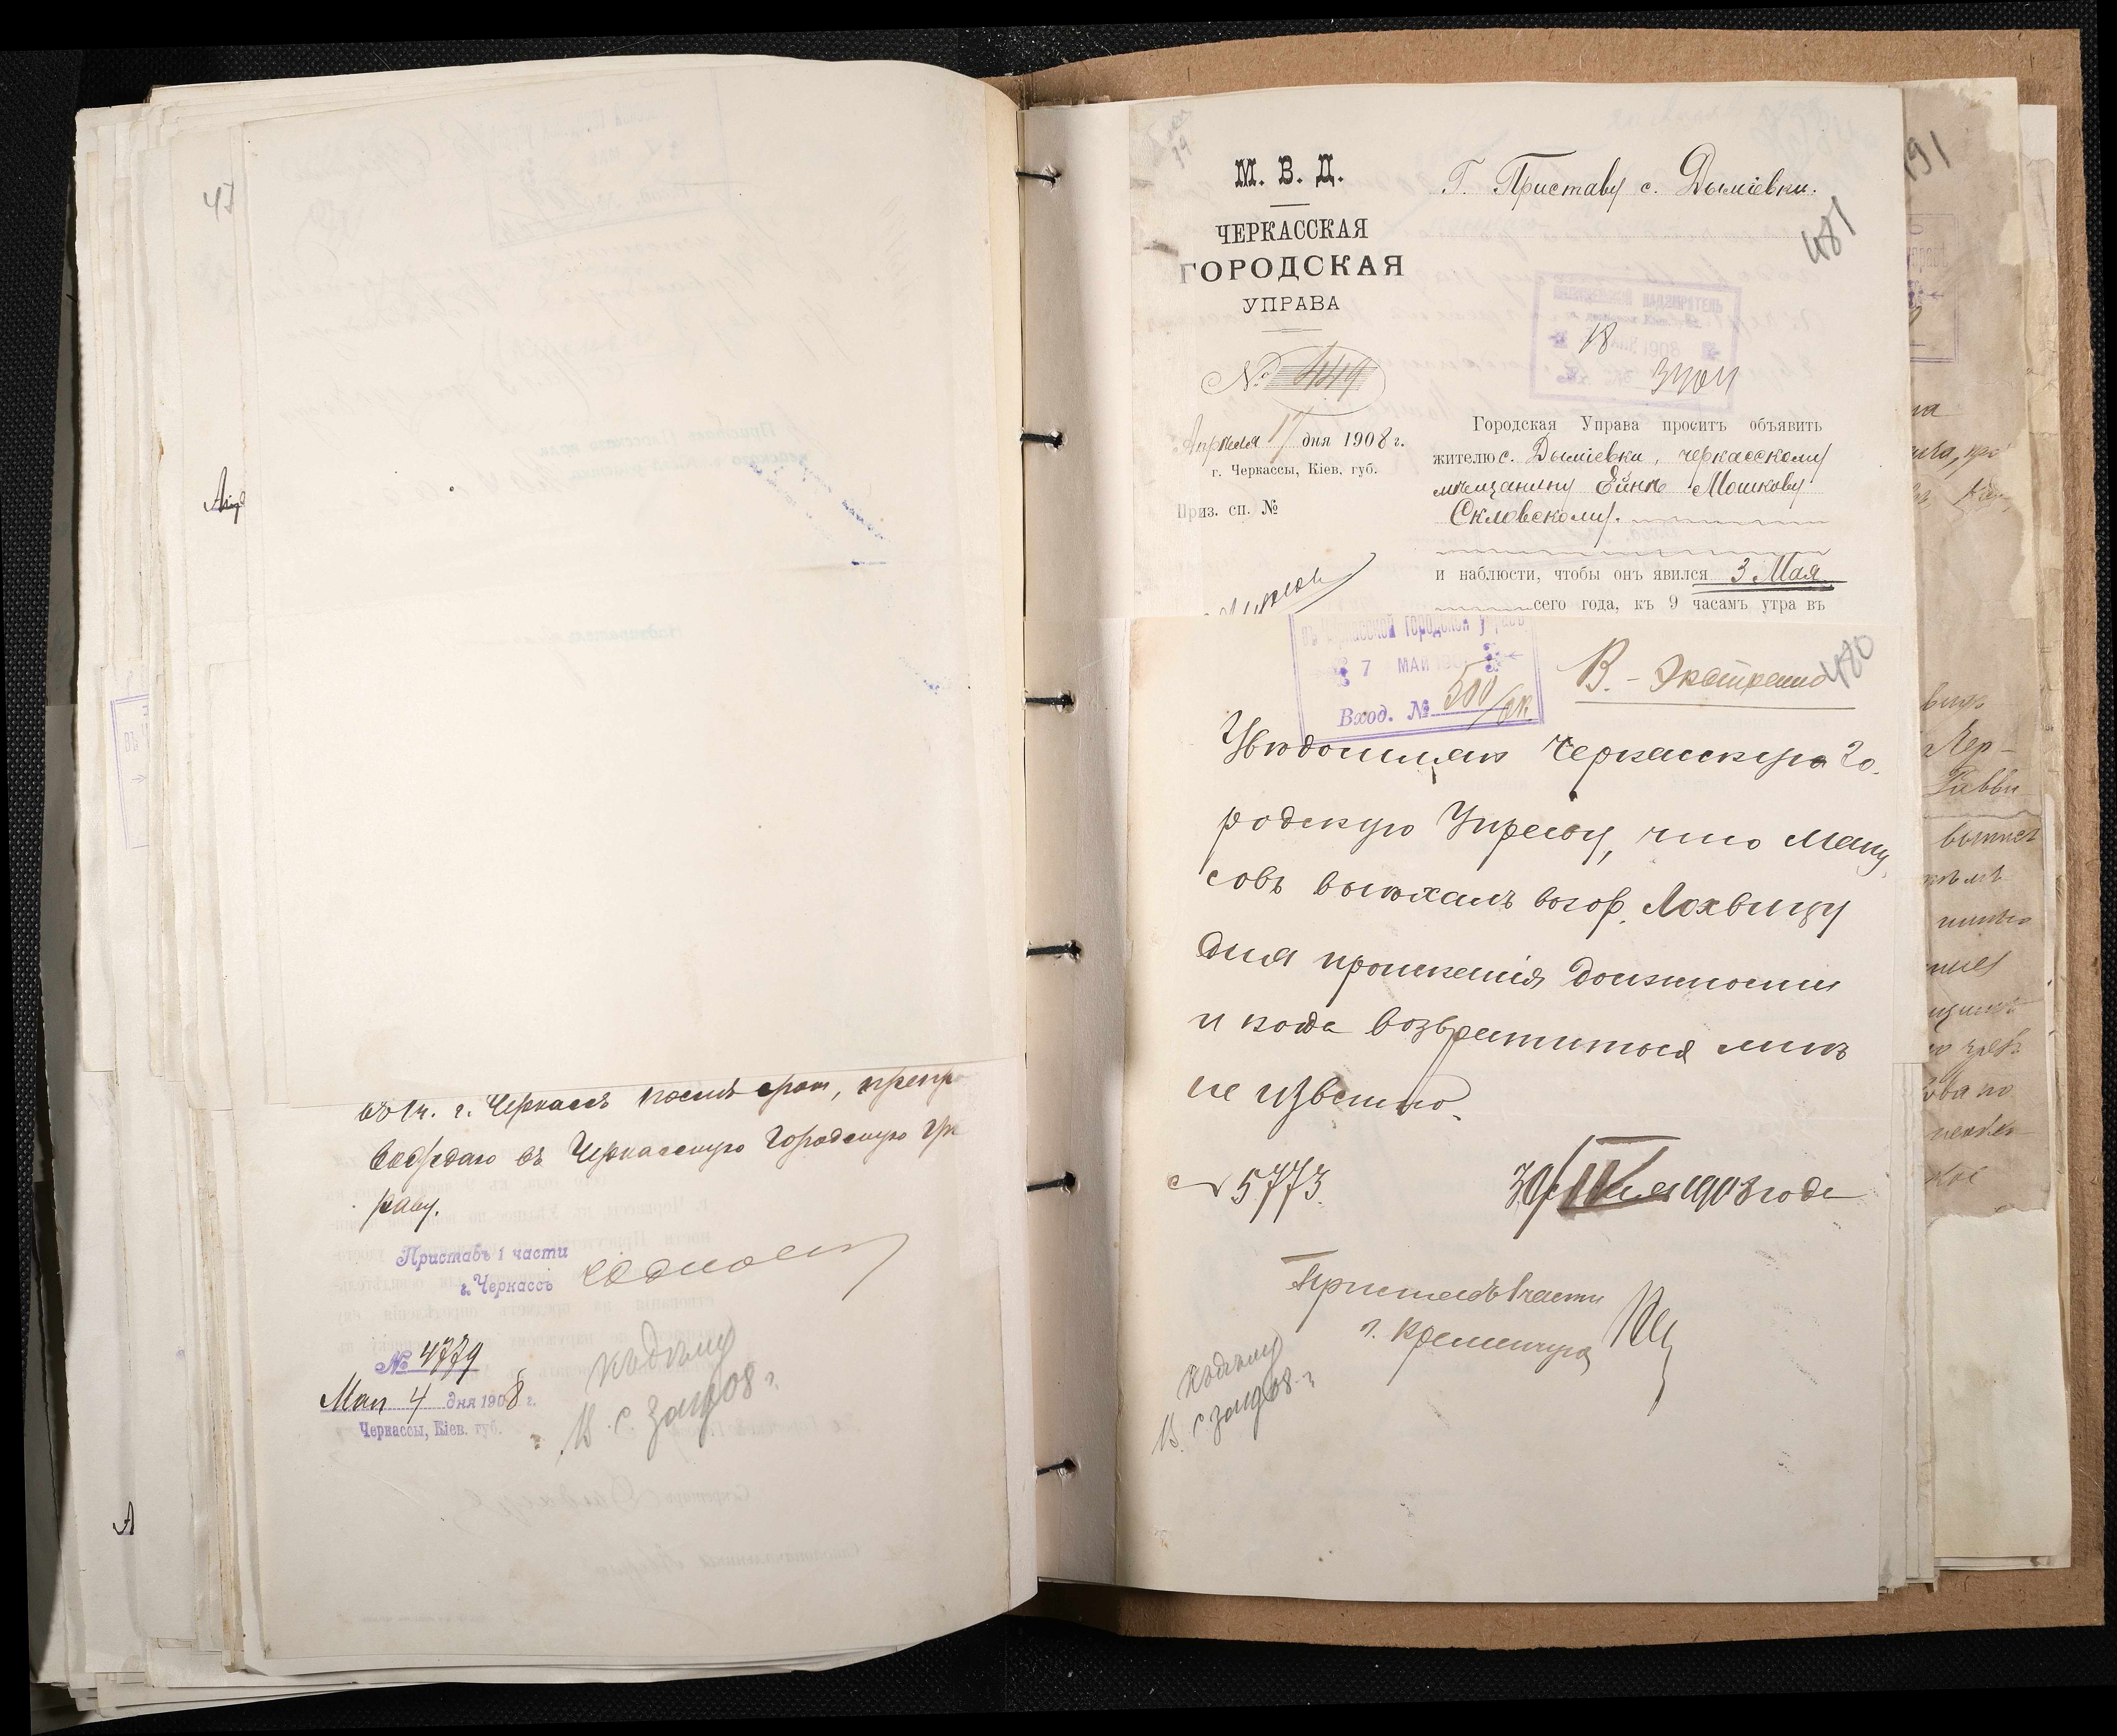 въ 1 ч. г. Черкассъ послѣ срок, препро
вождаю въ Черкасскую Городскую Уп
раву.
Приставъ 1 части
г. Черкассъ
№ 4779
Мая 4 дня 1908 г.
Черкассы, Кіев. губ.
Къ дѣлу
М. В. Д.
ЧЕРКАССКАЯ
ГОРОДСКАЯ
УПРАВА
№ 449
Апрѣля 17 дня 1908 г.
г. Черкассы, Кіев. губ.
Приз. сп. №
Г. Приставу с. Дыміевки.
481
18
Городская Управа проситъ объявить
жителю с. Дыміевки, черкасскому
мѣщанину Ейнѣ Мошкову
Скловскому.
и наблюсти, чтобы онъ явился 3 Мая
сего года, къ 9 часамъ утра въ
въ Черкасской Городской Управѣ
7 МАЙ 190
Вход. № 500/вк
480
Увѣдомляю Черкасскую Го-
родскую Управу, что Ману
совъ выѣхалъ въ гор. Лохвицу
для пріисканія должности
и когда возвратиться мнѣ
не извѣстно.
№ 5773.
30/IV 1908 года
Приставъ 1 части
г. Кременчуга
Къ дѣлу
191